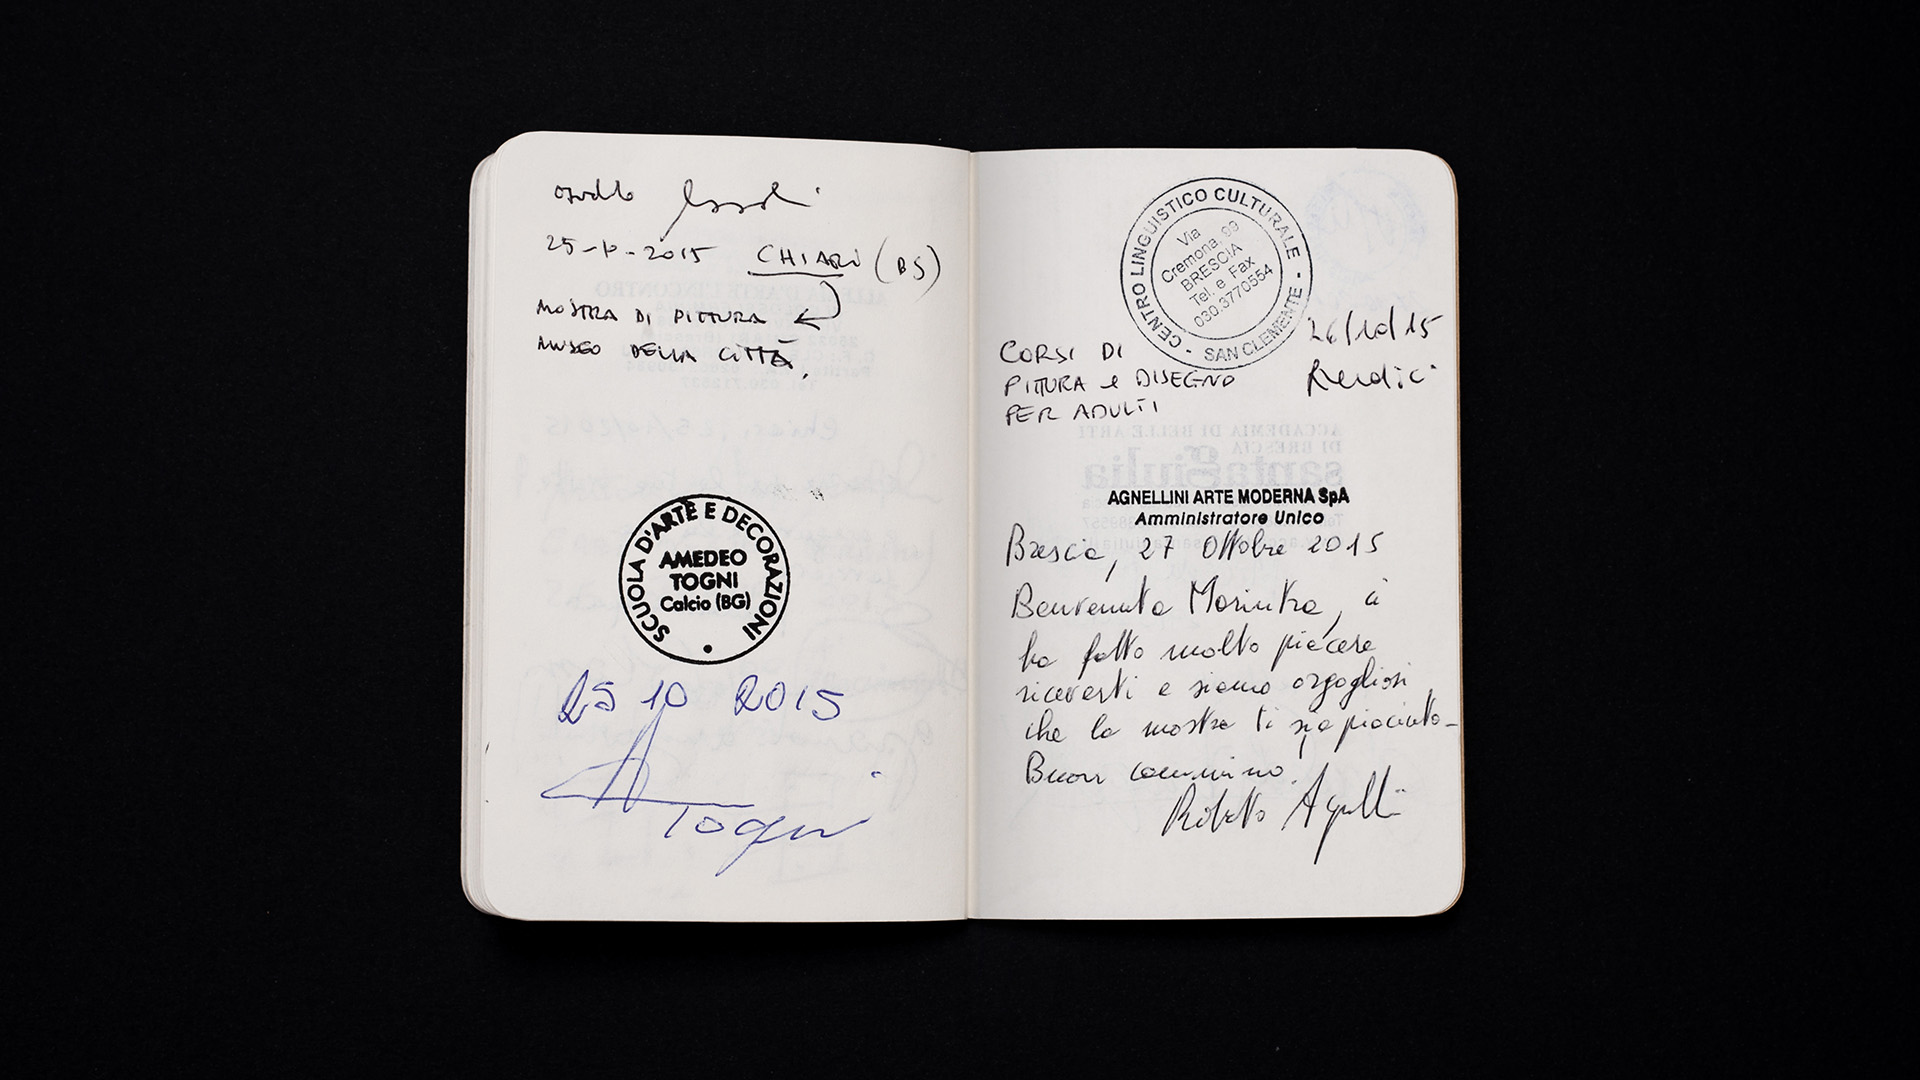 25-10-2015 CHIARI (BS)
MOSTRA DI PITTURA
MUSEO DELLA CITTÀ,
SCUOLA D'ARTE E DECORAZIONI
AMEDEO
TOGNI
Calcio (BG)
25 10 2015
Togni
CENTRO LINGUISTICO CULTURALE - SAN CLEMENTE -
Via
Cremona, 99
BRESCIA
Tel. e Fax
030.3770554
26/10/15
CORSI DI
PITTURA e DISEGNO
PER ADULTI
AGNELLINI ARTE MODERNA SpA
Amministratore Unico
Brescia, 27 Ottobre 2015
Benvenuta, ci
ha fatto molto piacere
riceverti e siamo orgogliosi
che la mostra ti sia piaciuta-
Buon cammino.
Roberto Agnellini